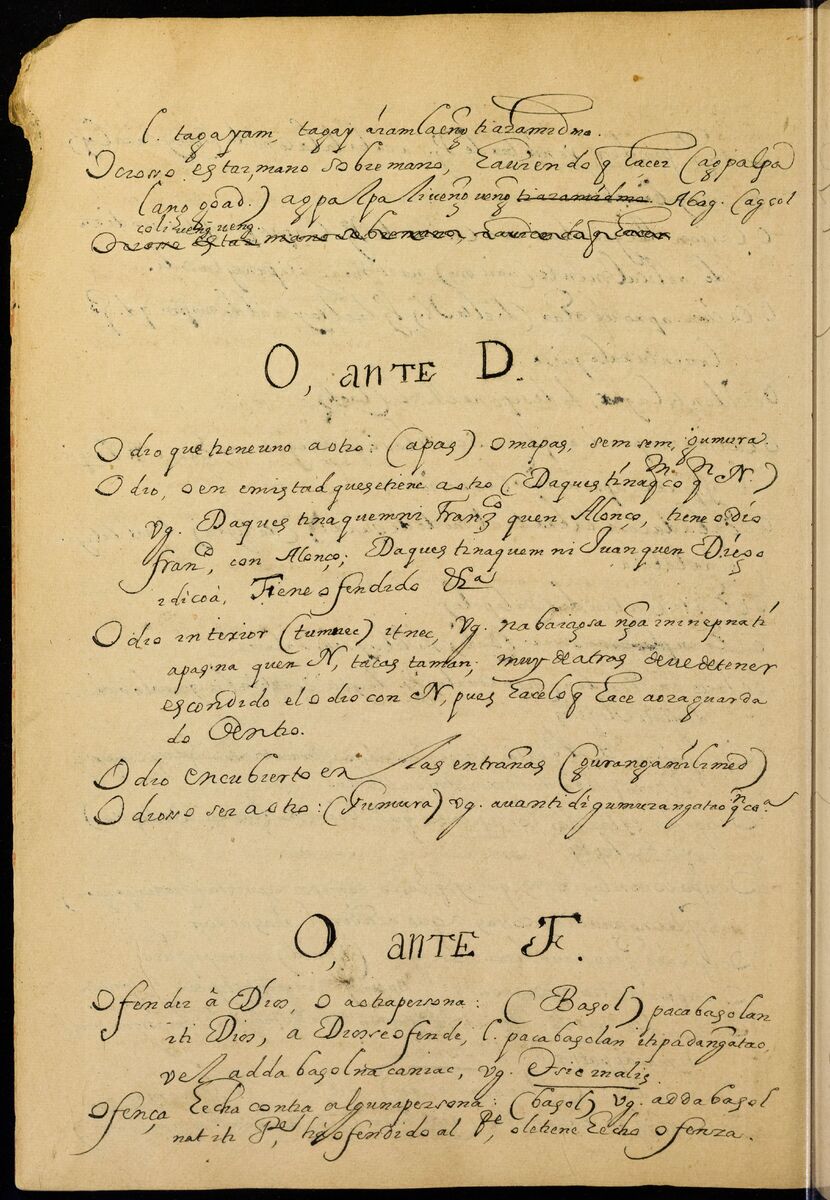 l. tagayam, tagay áramlaeng̃ tiaramidmo.
Ocioso estar mano sobremano, haviendo q̃ hacer (agpalpad
(ang̃ g̃ad.) agpalpaliueng̃ueng̃ tiaramidmo Abag. (agcol
coliuengueng.
Ocioso estar mano sobremano, haviendo q̃ hacer
O, ante D.
Odio que tiene uno a otro: (apas) omapas, semsem, gumura.
Odio, o enemistad que se tiene a otro (Daques tinaq̃co q̃ N.)
Vg. Daques tinaquemni Franco quen Alonço, tiene odio
franco, con Alonço; Daques tinaquem ni Juan quen Diego
idicoà, Tiene ofendido &a
Odio interior (tumnec) itnec, Vg. nabaiagsa ng̃a ininepnati
apasna quen N, tatas taman; muy de atras deue detener
escondido el odio con N, pues hacelo q̃ hace aora guarda
do Dentro.
Odio encubierto en las entrañas (gurangan̂ilimed)
Odioso ser a otro: (Gumura) vg. auanti di gumurangatao q̃coa
O, ante F.
Ofender â Dios, o a otra persona: (Basol) pacabasolan
iti Dios, a Dios se ofende, l. pacabasolan itipadang̃atao,
vel adda basolna caniac, vg. Dsic inalis
Ofença hecha contra alguna persona: (basol) vg. adda basol
nat iti Pe, ha ofendido al Pe, o le tiene hecho ofenza.